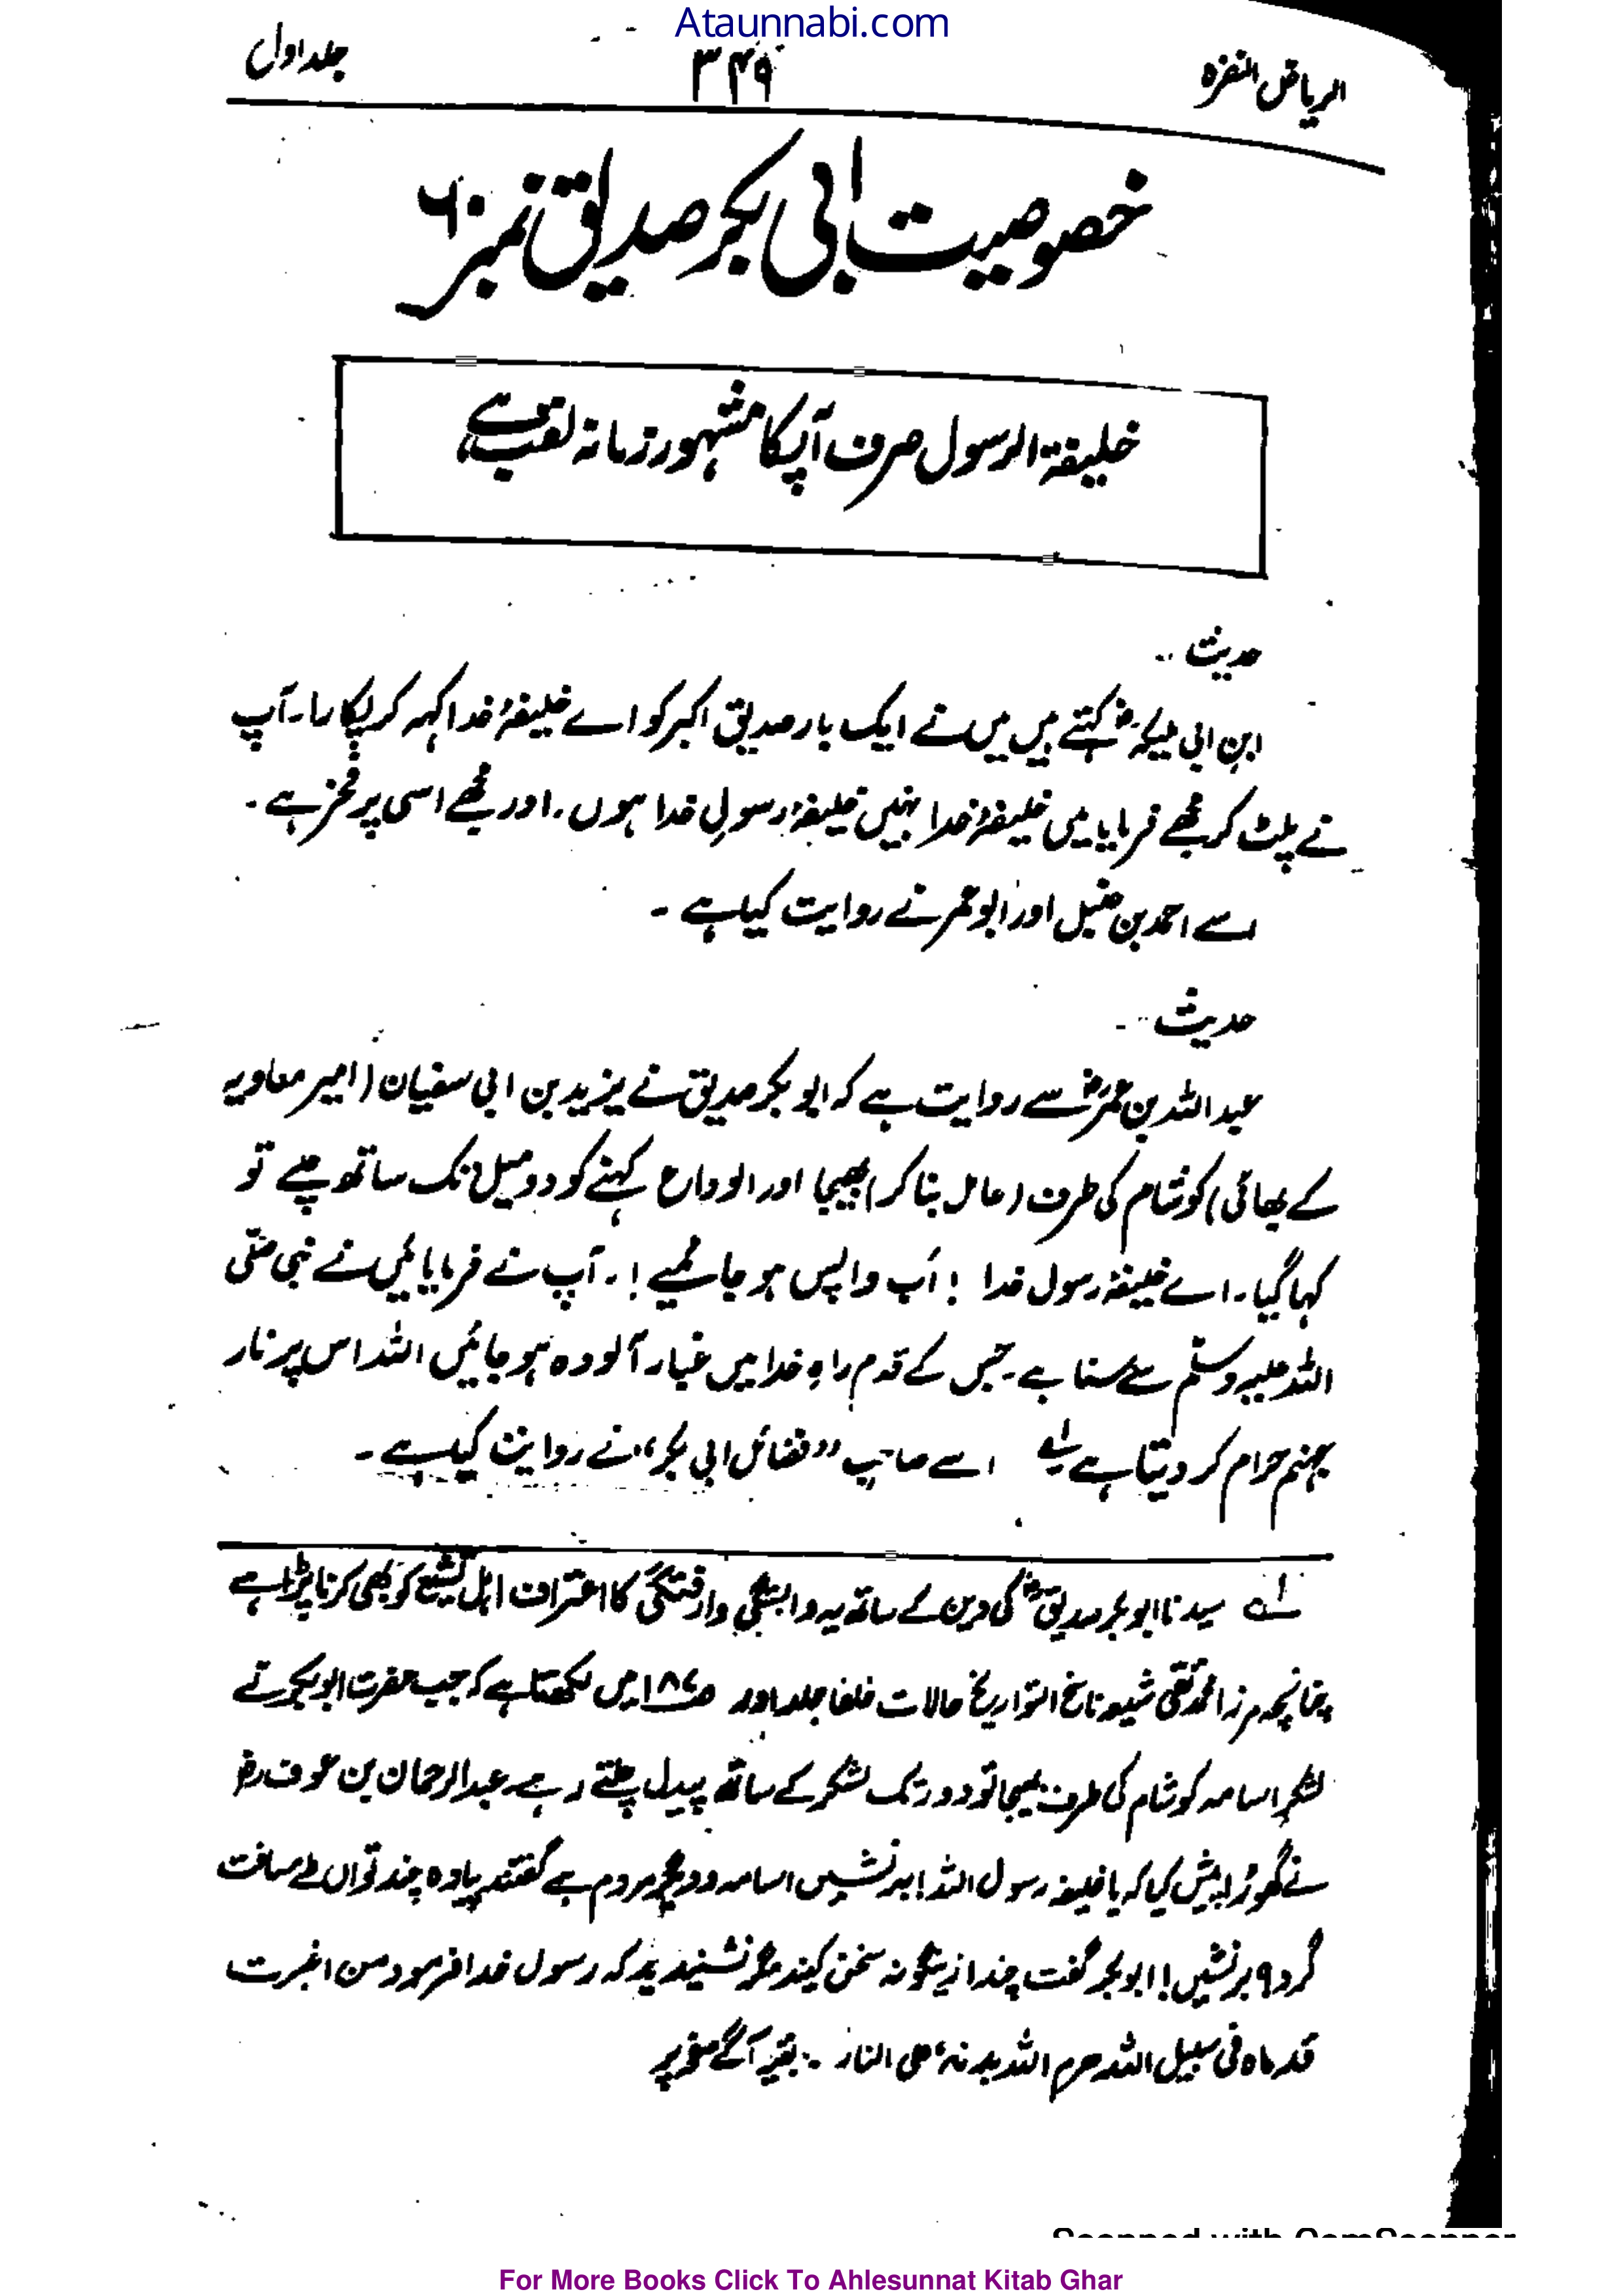 Ataunnabi.com
الریاض النضرہ ۳۴۹ جلد اول
خصوصیت ابی بکر صدیق نمبر ۶۰
خلیفۃ الرسول صرف آپکا مشہور زمانہ لقب ہے
حدیث ۔۔
ابن ابی ملیکہؓ کہتے ہیں میں نے ایک بار صدیق اکبر کو اے خلیفۂ خدا کہہ کر پکارا۔ آپ
نے پلٹ کر مجھے فرمایا میں خلیفۂ خدا نہیں خلیفۂ رسولِ خدا ہوں ۔ اور مجھے اسی پر فخر ہے ۔
اسے احمد بن حنبل اور ابو عمر نے روایت کیا ہے ۔
حدیث ۔۔
عبداللہ بن عمرؓ سے روایت ہے کہ ابو بکر صدیق نے یزید بن ابی سفیان (امیر معاویہ
کے بھائی) کو شام کی طرف (عامل بنا کر) بھیجا اور الوداع کہنے کو دو میل تک ساتھ چلے تو
کہا گیا ۔ اے خلیفۂ رسول خدا ! آپ واپس ہو جائیے ! ۔ آپ نے فرمایا میں نے نبی صلی
اللہ علیہ وسلم سے سنا ہے ۔ جس کے قدم راہِ خدا میں غبار آلودہ ہو جائیں اللہ اس پر نار
جہنم حرام کر دیتا ہے لے اسے صاحب ”فضائل ابی بکر“ نے روایت کیا ہے ۔
لے سیدنا ابو بکر صدیقؓ کی دین کے ساتھ یہ وابستگی وارفتگی کا اعتراف اہل تشیع کو بھی کرنا پڑا ہے
چنانچہ مرزا محمد تقی شیعہ ناسخ التواریخ حالات خلفا جلد اول ص۱۸۷ میں لکھتا ہے کہ جب حضرت ابوبکر نے
لشکر اسامہ کو شام کی طرف بھیجا تو دور تک لشکر کے ساتھ پیدل چلتے رہے۔ عبدالرحمان بن عوف رض
نے گھوڑا پیش کیا کہ یا خلیفہ رسول اللہ! بر نشیں اسامہ و دیگر مردم ہے گفتند پیادہ چند تواں طے مسافت
کرد ۹ بر نشیں ! ابوبکر گفت چند ازینگونہ سخن کیند مگر نشنیدید کہ رسول خدا فرمود من اغبرت
قدماہ فی سبیل اللہ حرم اللہ بدنہ علی النار ۔ بقیہ آگے صفحہ پر
For More Books Click To Ahlesunnat Kitab Ghar